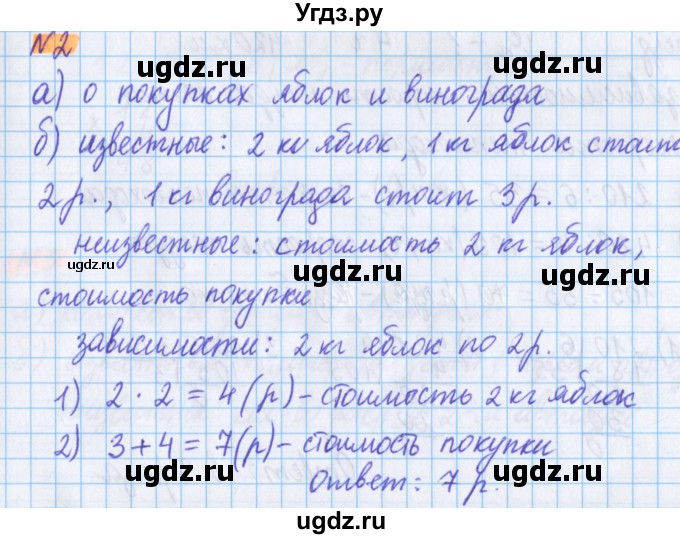 Угдз.ру
N2
ugdz.ru ugdz.ru
а) о покупках яблок и винограда
ugdz.ru
б) известные: 2 кг яблок, 1 кг яблок стоит
ugdz.ru ugdz.ru
2 р., 1 кг винограда стоит 3 р.
неизвестные: стоимость 2 кг яблок,
ugdz.ru
стоимость покупки
ugdz.ru ugdz.ru
зависимости: 2 кг яблок по 2 р.
ugdz.ru
1) 2 · 2 = 4 (р) - стоимость 2 кг яблок
2) 3 + 4 = 7 (р) - стоимость покупки
ugdz.ru ugdz.ru
Ответ: 7 р.
ugdz.ru